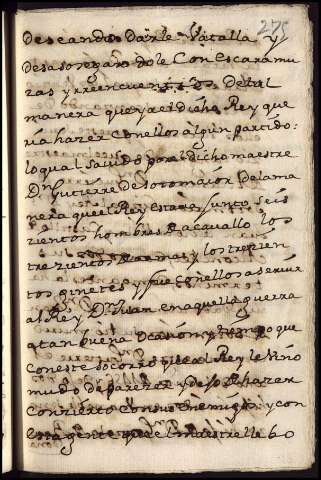 275
Deseando Darle Vatalla y
desasosegandole Con Escaramu
zas y rreencuentros De tal
manera que ya el dicho Rey que
ria hazer Con ellos algun partido:
lo qual Savido por el dicho maestre
Dn Gutierre de Sotomaior De la ma
nera que el Rey Estava junto seis
zientos hombres de acavallo los
trezientos de armas y los trezien
tos ginetes y fue Con ellos a servir
al Rey Dn Juan en aquella guerra
a tan buena Ocasion y tiempo que
Con este socorro que al Rey le vino
mudo de parezer y dejo de hazer
Conzierto Con sus Enemigos y con
Esta gente que el maestre llebo